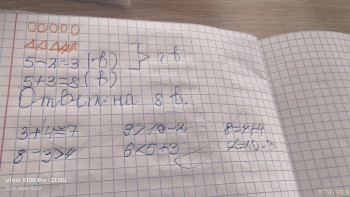 5-2=3(в)
5+3=8(в)
Ответ: на 8 в.
3+4=7 9>10-2 8=4+4
8-3>4 6<5+3
vivo X100 Pro · ZEISS